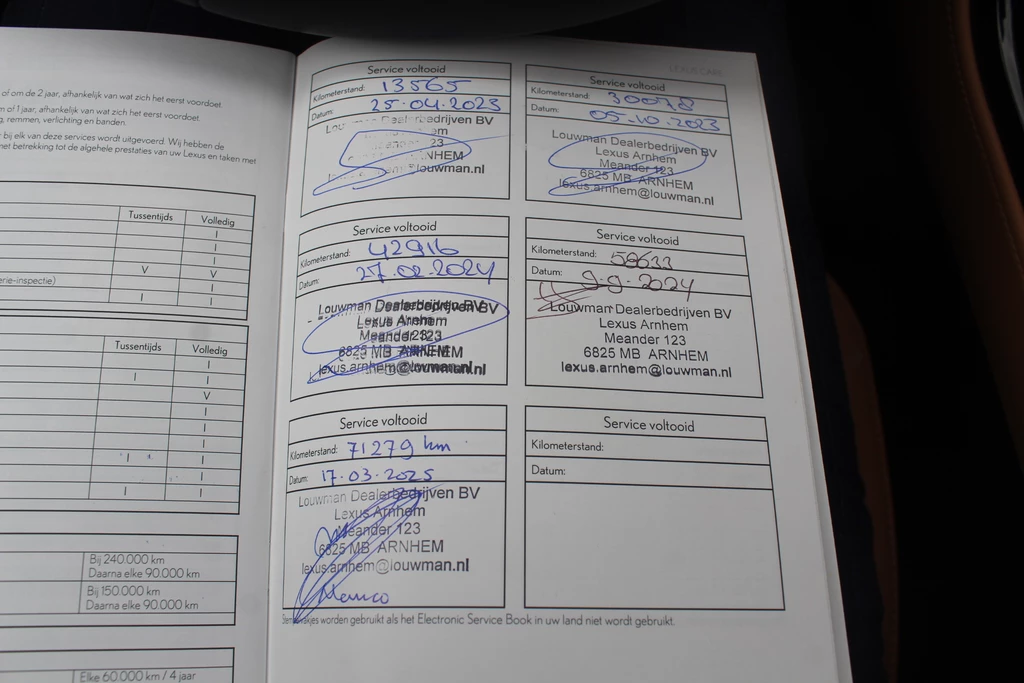 of om de 2 jaar, afhankelijk van wat zich het eerst voordoet.
of 1 jaar, afhankelijk van wat zich het eerst voordoet.
remmen, verlichting en banden.
bij elk van deze services wordt uitgevoerd. Wij hebben de
met betrekking tot de algehele prestaties van uw Lexus en taken met
Tussentijds Volledig
I
I
I
V V
erie-inspectie) I
I I
Tussentijds Volledig
I
I I
V
I
I
I
I I
I
I I
Bij 240.000 km
Daarna elke 90.000 km
Bij 150.000 km
Daarna elke 90.000 km
Elke 60.000 km / 4 jaar
LEXUS CARE
Service voltooid
Kilometerstand: 13565
Datum: 25-04-2023
Louwman Dealerbedrijven BV
123
ARNHEM
@louwman.nl
Service voltooid
Kilometerstand: 30078
Datum: 05-10-2023
Louwman Dealerbedrijven BV
Lexus Arnhem
Meander 123
6825 MB ARNHEM
lexus.arnhem@louwman.nl
Service voltooid
Kilometerstand: 42916
Datum: 27-02-2024
Louwman Dealerbedrijven BV
Lexus Arnhem
Meander 123
6825 MB ARNHEM
lexus.arnhem@louwman.nl
Service voltooid
Kilometerstand: 58633
Datum: 9-9-2024
Louwman Dealerbedrijven BV
Lexus Arnhem
Meander 123
6825 MB ARNHEM
lexus.arnhem@louwman.nl
Service voltooid
Kilometerstand: 71279 km
Datum: 17-03-2025
Louwman Dealerbedrijven BV
Lexus Arnhem
Meander 123
6825 MB ARNHEM
lexus.arnhem@louwman.nl
Service voltooid
Kilometerstand:
Datum:
worden gebruikt als het Electronic Service Book in uw land niet wordt gebruikt.